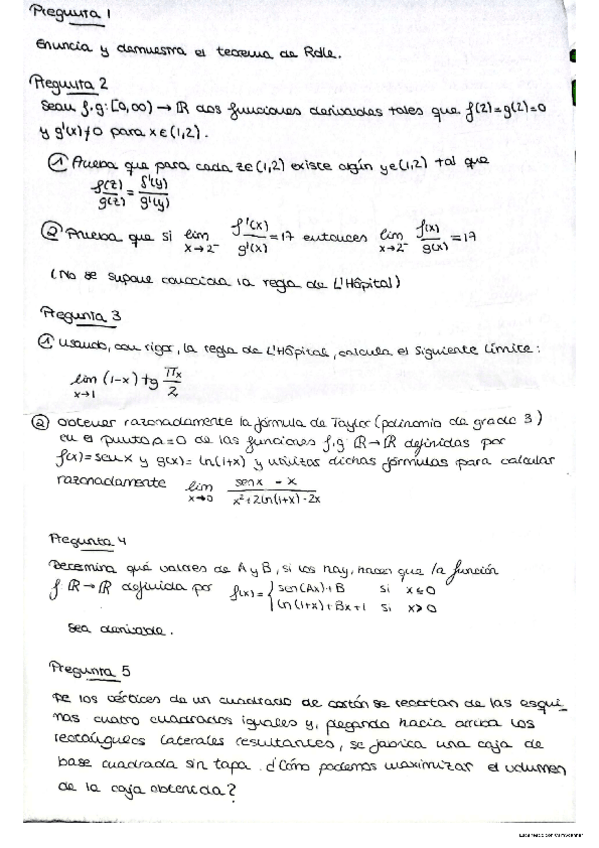 Pregunta 1
Enuncia y demuestra el teorema de Rolle.
Pregunta 2
Sean f,g: [0,∞) → ℝ dos funciones derivables tales que f(2)=g(2)=0
y g'(x)≠0 para x∈(1,2).
① Prueba que para cada z∈(1,2) existe algún y∈(1,2) tal que
f(z)/g(z) = f'(y)/g'(y)
② Prueba que si lim x→2⁻ f'(x)/g'(x) = 17 entonces lim x→2⁻ f(x)/g(x) = 17
(No se supone conocida la regla de L'Hôpital)
Pregunta 3
① Usando, con rigor, la regla de L'Hôpital, calcula el siguiente límite:
lim x→1 (1-x) tg πx/2
② Obtener razonadamente la fórmula de Taylor (polinomio de grado 3)
en el punto a=0 de las funciones f,g: ℝ→ℝ definidas por
f(x)=senx y g(x)= ln(1+x) y utilizas dichas fórmulas para calcular
razonadamente lim x→0 senx - x / x²+2ln(1+x)-2x
Pregunta 4
Determina qué valores de A y B, si los hay, hacen que la función
f ℝ→ℝ definida por f(x)= { sen(Ax)+B si x≤0
ln(1+x)+Bx+1 si x>0
sea derivable.
Pregunta 5
De los vértices de un cuadrado de cartón se recortan de las esqui_
nas cuatro cuadrados iguales y, plegando hacia arriba los
rectángulos laterales resultantes, se fabrica una caja de
base cuadrada sin tapa. ¿Cómo podemos maximizar el volumen
de la caja obtenida?